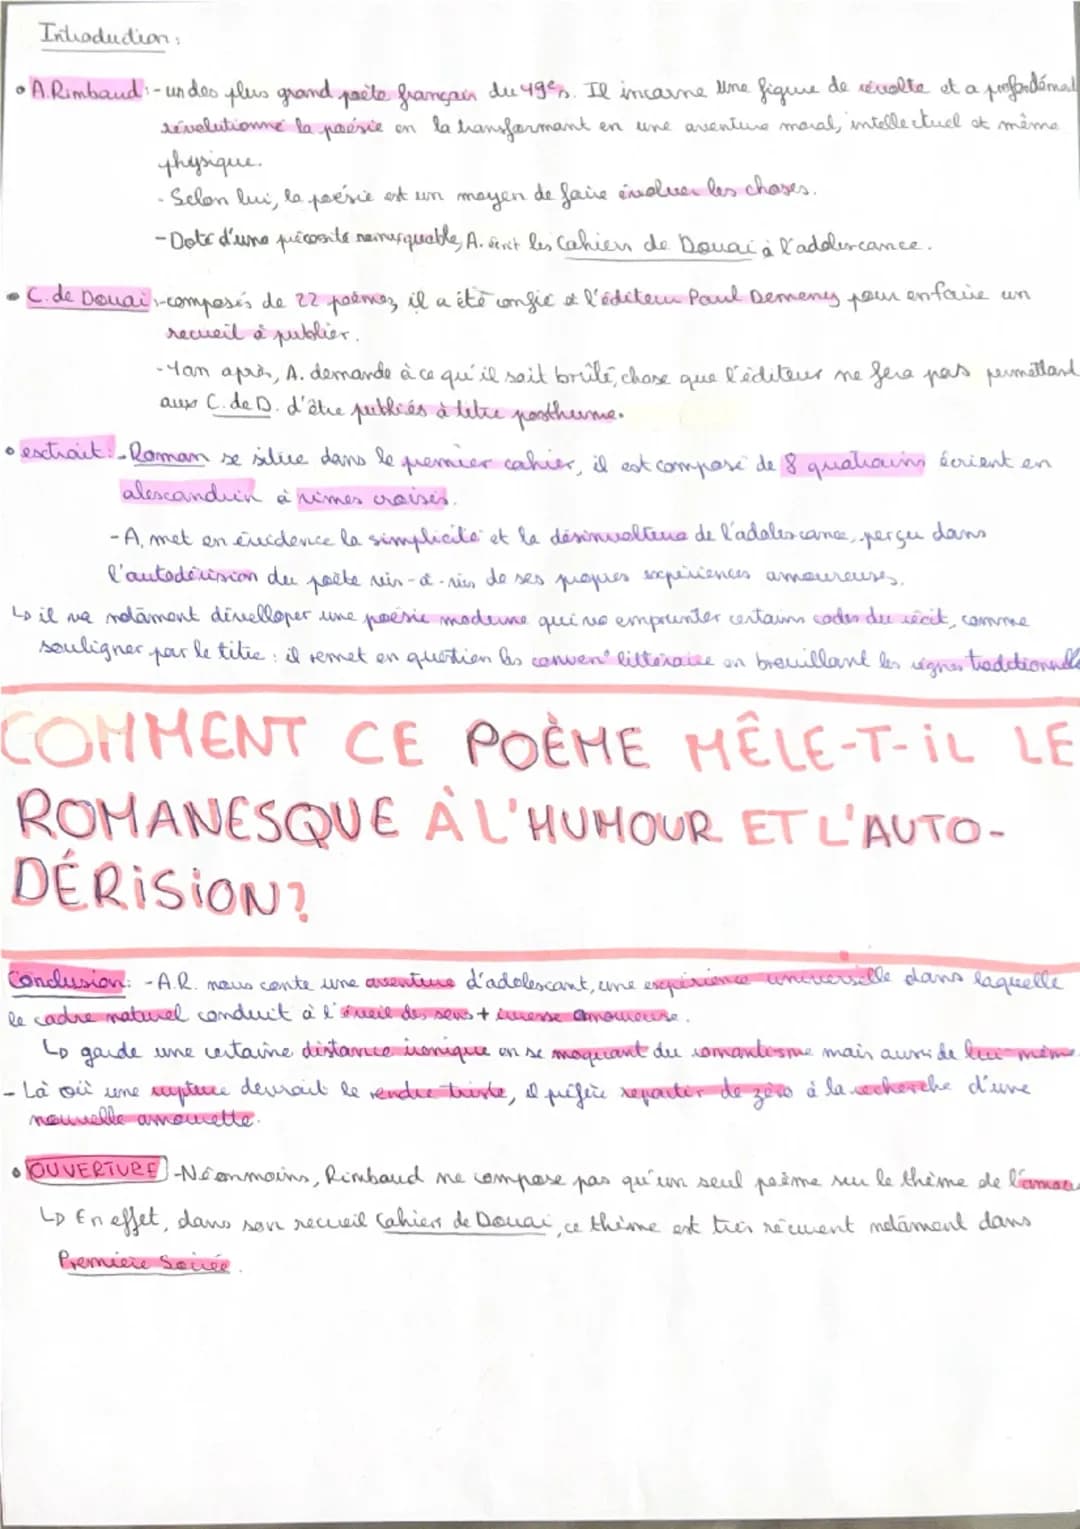 Introduction :
• A. Rimbaud : - un des plus grand poète français du 19e s. Il incarne une figure de révolte et a profondément
révolutionné la poésie en la transformant en une aventure moral, intellectuel et même
physique.
- Selon lui, la poésie est un moyen de faire évoluer les choses.
- Doté d'une précosité remarquable, A. écrit les Cahiers de Douai à l'adolescance.
• C. de Douai : - composés de 22 poèmes, il a été confié à l'éditeur Paul Demeny pour en faire un
recueil à publier.
- 1an après, A. demande à ce qu'il soit brûlé, chose que l'éditeur ne fera pas permettant
aux C. de D. d'être publiés à titre posthume.
• extrait : - Roman se situe dans le premier cahier, il est composé de 8 quatrains écrient en
alexandrin à rimes croisés.
- A. met en évidence la simplicité et la désinvolture de l'adolescance, perçu dans
l'autodérision du poète vis-à-vis de ses propres expériences amoureuses.
↳ il va notament dévelloper une poésie moderne qui va emprunter certains codes du récit, comme
souligner par le titre : il remet en question les conven° littéraire en brouillant les règnes traditionnelles
COMMENT CE POÈME MÊLE-T-IL LE
ROMANESQUE À L'HUMOUR ET L'AUTO-
DÉRISION?
Conclusion : - A.R. nous conte une aventure d'adolescant, une expérience universelle dans laquelle
le cadre naturel conduit à l'éveil des sens + ivresse amoureuse.
↳ garde une certaine distance ironique en se moquant du romantisme mais aussi de lui-même.
- Là où une rupture devrait le rendre triste, il préfère repartir de zéro à la recherche d'une
nouvelle amourette.
• OUVERTURE - Néonmoins, Rimbaud ne compose pas qu'un seul poème sur le thème de l'amour
↳ En effet, dans son recueil Cahiers de Douai, ce thème est très récurent notament dans
Première Soirée.